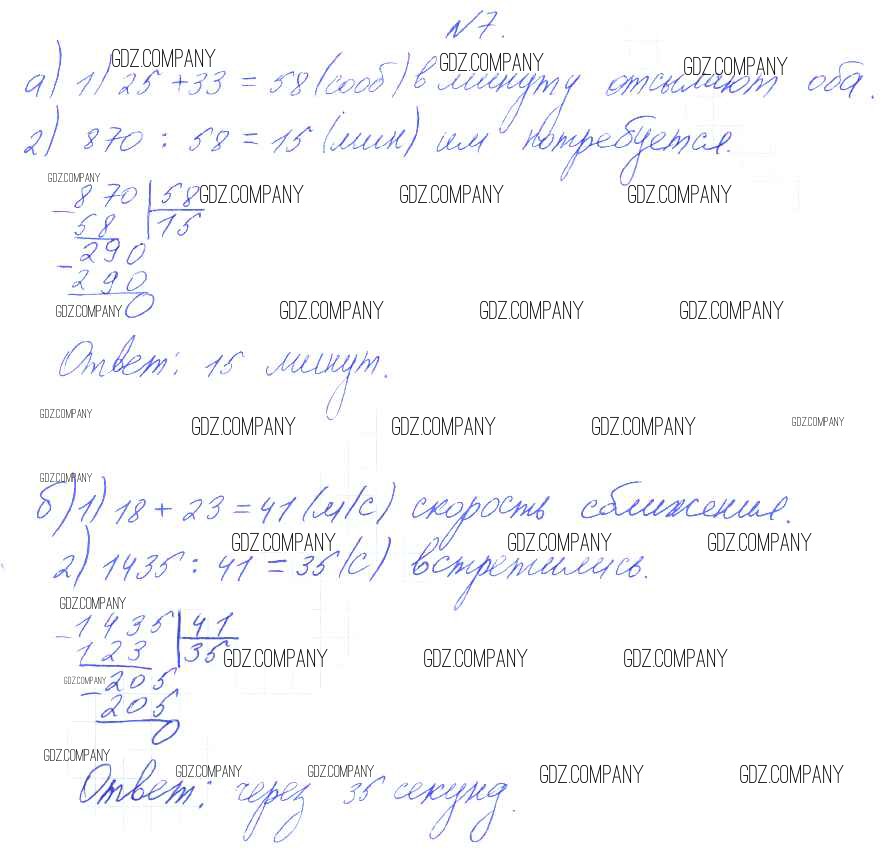 N7.
GDZ.COMPANY GDZ.COMPANY GDZ.COMPANY
а) 1) 25 + 33 = 58 (сооб) в минуту отсылают оба.
2) 870 : 58 = 15 (мин) им потребуется.
GDZ.COMPANY
870 | 58 GDZ.COMPANY GDZ.COMPANY GDZ.COMPANY
58 | 15
290
290
0
GDZ.COMPANY GDZ.COMPANY GDZ.COMPANY GDZ.COMPANY
Ответ: 15 минут.
GDZ.COMPANY GDZ.COMPANY GDZ.COMPANY GDZ.COMPANY GDZ.COMPANY
GDZ.COMPANY
б) 1) 18 + 23 = 41 (м/с) скорость сближения.
GDZ.COMPANY GDZ.COMPANY GDZ.COMPANY
2) 1435 : 41 = 35 (с) встретились.
GDZ.COMPANY
1435 | 41
123 | 35 GDZ.COMPANY GDZ.COMPANY GDZ.COMPANY
GDZ.COMPANY
205
205
0
GDZ.COMPANY GDZ.COMPANY GDZ.COMPANY GDZ.COMPANY GDZ.COMPANY
Ответ: через 35 секунд.